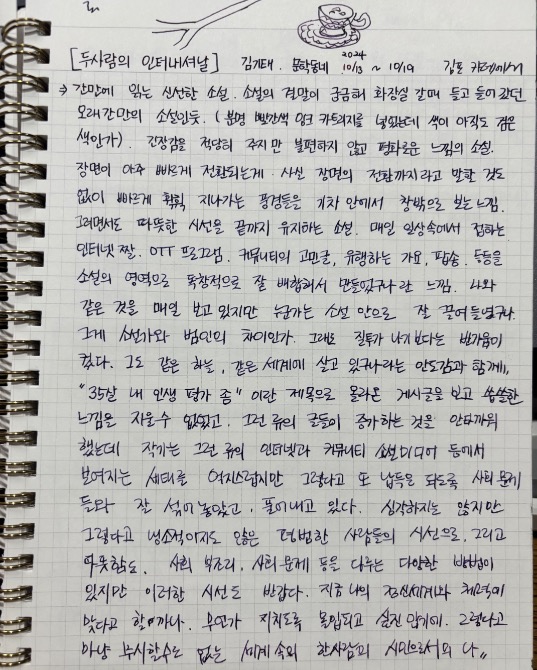 [두사람의 인터내셔날] 김기태. 문학동네 2024 10/13 ~ 10/19 김포 카페에서
→ 간만에 읽는 신선한 소설. 소설의 결말이 궁금해 화장실 갈때 들고 들어갔던
오래간만의 소설인듯. (분명 빨간색 잉크 카트리지를 넣었는데 색이 아직도 검은
색인가). 긴장감을 적당히 주지만 불편하지 않고 평화로운 느낌의 소설.
장면이 아주 빠르게 전환되는게. 사실 장면의 전환까지라고 말할 것도
없이 빠르게 휙휙 지나가는 풍경들을 기차 안에서 창밖으로 보는 느낌.
그러면서도 따뜻한 시선을 끝까지 유지하는 소설. 매일 일상속에서 접하는
인터넷 짤. OTT 프로그램. 커뮤니티의 고민글, 유행하는 가요, 팝송. 등등을
소설의 영역으로 독창적으로 잘 배합해서 만들었구나 란 느낌. 나와
같은 것을 매일 보고 있지만 누군가는 소설 안으로 잘 끌어들였구나.
그게 소설가와 범인의 차이인가. 그래도 질투가 나기보다는 반가움이
컸다. 그도 같은 하늘, 같은 세계에 살고 있구나라는 안도감과 함께,,
"35살 내 인생 평가 좀" 이란 제목으로 올라온 게시글을 보고 씁쓸한
느낌을 지울수 없었고. 그런 류의 글들이 증가하는 것을 안타까워
했는데 작가는 그런 류의 인터넷과 커뮤니티 소셜미디어 등에서
보여지는 세태를 억지스럽지만 그렇다고 또 납득은 되도록 사회 문제
들과 잘 섞어 놓았고. 풀어내고 있다. 심각하지는 않지만
그렇다고 냉소적이지도 않은 평범한 사람들의 시선으로. 그리고
따뜻함도. 사회 부조리. 사회 문제 등을 다루는 다양한 방법이
있지만 이러한 시선도 반갑다. 지금 나의 정신세계나 체력에
맞다고 할까나. 우연가 지치도록 몰입되고 싫진 않기에. 그렇다고
마냥 무시할수도 없는 세계 속의 한사람의 시민으로서의 나,,